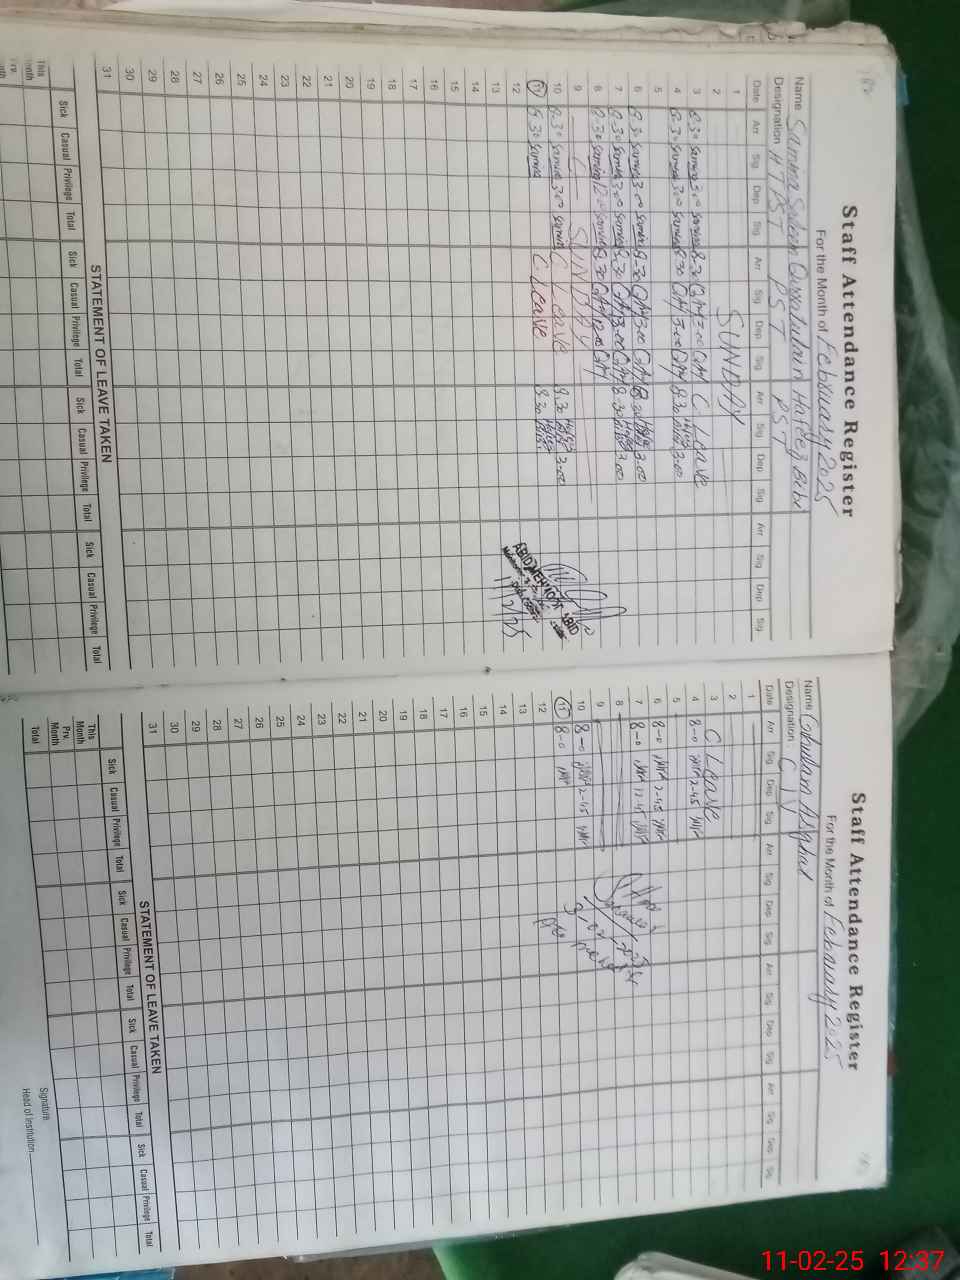 Staff Attendance Register
For the Month of February 2025
Name Samina Saleem Qurratulain Hafeez Bibi
Designation HTPST PST PST
Date Arr Sig Dep Sig Arr Sig Dep Sig Arr Sig Dep Sig Arr Sig Dep Sig
1
2 SUNDAY
3 8.30 Samina 3.00 Samina 8.30 QAH 3.00 QAH C Leave
4 8.30 Samina 3.00 Samina 8.30 QAH 3.00 QAH 8.30 3.00
5
6 8.30 Samina 3.00 Samina 8.30 QAH 3.00 QAH 8.30 3.00
7 8.30 Samina 3.00 Samina 8.30 QAH 3.00 QAH 8.30 3.00
8 8.30 Samina 12.00 Samina 8.30 QAH 12.00 QAH
9 SUNDAY
10 8.30 Samina 3.00 Samina C Leave 8.30 3.00
11 8.30 Samina C Leave 8.30
12
13
14
15
16
17
18
19
20
21
22
23
24
25
26
27
28
29
30
31
ABID MEHMOOD ABID
11/2/25
STATEMENT OF LEAVE TAKEN
Sick Casual Privilege Total Sick Casual Privilege Total Sick Casual Privilege Total Sick Casual Privilege Total
This Month
Prv.
Staff Attendance Register
For the Month of February 2025
Name Ghulam Asghar
Designation : C IV
Date Arr Sig Dep Sig Arr Sig Dep Sig Arr Sig Dep Sig Arr Sig Dep Sig
1
2
3 C Leave
4 8-0 2-45
5
6 8-0 2-45
7 8-0 12-45
8
9
10 8-0 2-45
11 8-0
12
13
14
15
16
17
18
19
20
21
22
23
24
25
26
27
28
29
30
31
STATEMENT OF LEAVE TAKEN
Sick Casual Privilege Total Sick Casual Privilege Total Sick Casual Privilege Total Sick Casual Privilege Total
This Month
Prv. Month
Total
Signature
Head of Institution
11-02-25 12:37